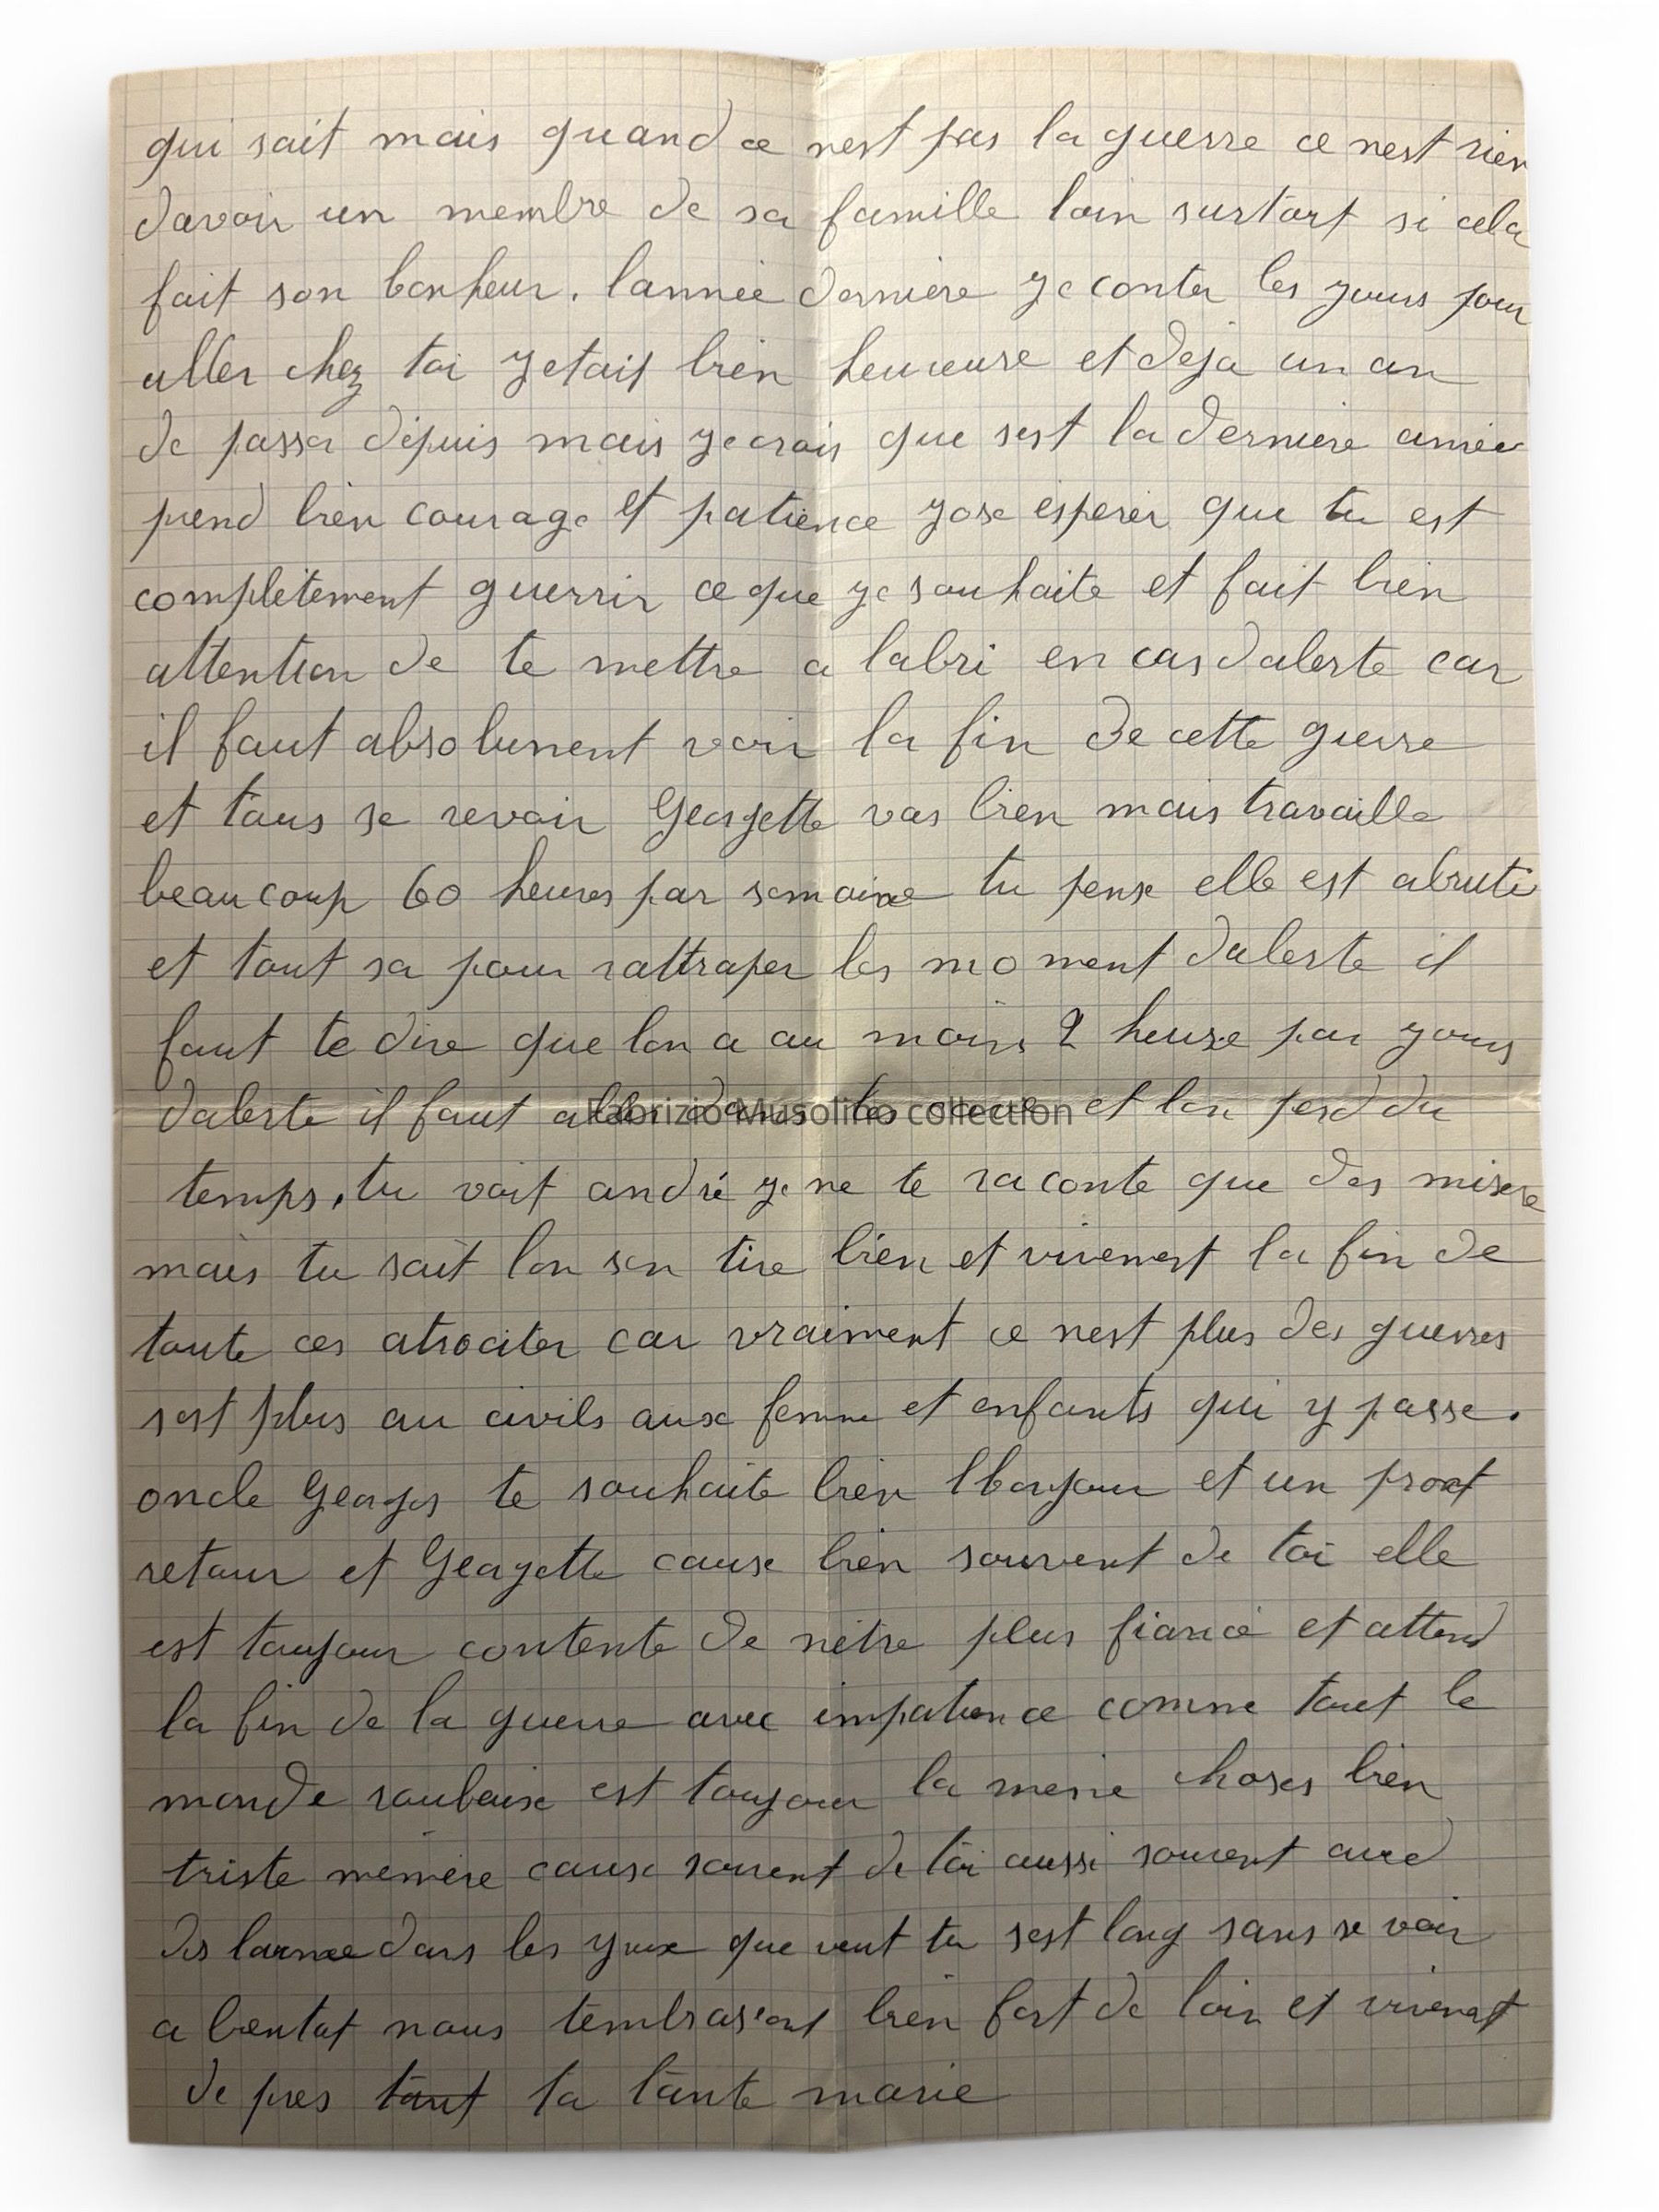 qui sait mais quand ce nest pas la guerre ce nest rien
davoir un membre de sa famille loin surtout si cela
fait son bonheur. lannée derniere ye conter les yours pour
aller chez toi yetait bien heureuse et deja un an
de passer depuis mais ye crois que sest la derniere année
prend bien courage et patience yose esperer que tu est
complètement guerrir ce que ye souhaite et fait bien
attention de te mettre a labri en cas dalerte car
il faut absolument voir la fin de cette guerre
et tous se revoir Georgette vas bien mais travaille
beaucoup 60 heures par semaine tu pense elle est abruti
et tout sa pour rattraper les moment dalerte il
faut te dire que lon a au moins 2 heure par yours
dalerte il faut aller dans les cave et lon perd du
Fabrizio Musolino collection
temps. tu voit andré ye ne te raconte que des misere
mais tu sait lon sen tire bien et vivement la fin de
toute ces atrociter car vraiment ce nest plus des guerres
sest plus au civils aux femme et enfants qui y passe.
oncle Georges te souhaite bien lbonyour et un pront
retour et Georgette cause bien souvent de toi elle
est touyour contente de nêtre plus fiancé et attend
la fin de la guerre avec impatience comme tout le
monde roubaix est touyour la meme choses bien
triste mémère cause souvent de toi aussi souvent aved
des larmee dans les yeux que veut tu sest long sans se voir
a bientot nous tembrassont bien fort de loin et vivement
de pres tout ta tante marie